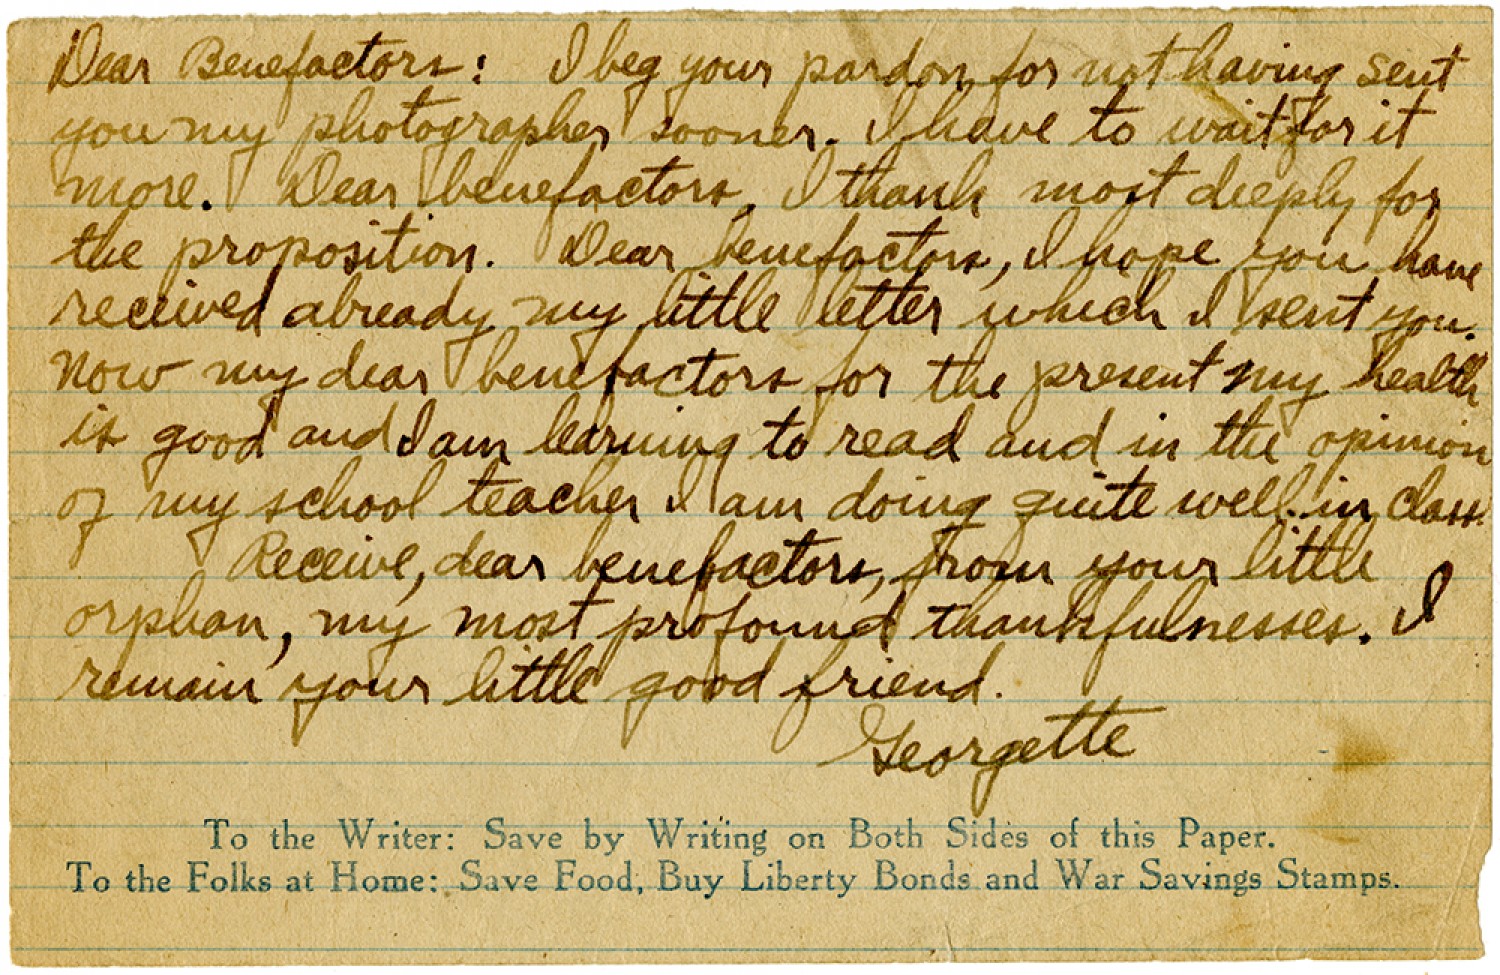 Dear Benefactors: I beg your pardon for not having sent
you my photographer sooner. I have to wait for it
more. Dear benefactors, I thank most deeply for
the proposition. Dear benefactors, I hope you have
received already my little letter which I sent you.
Now my dear benefactors for the present my health
is good and I am learning to read and in the opinion
of my school teacher I am doing quite well in class.
Receive, dear benefactors, from your little
orphan, my most profound thankfulnesses. I
remain your little good friend.
Georgette
To the Writer: Save by Writing on Both Sides of this Paper.
To the Folks at Home: Save Food, Buy Liberty Bonds and War Savings Stamps.